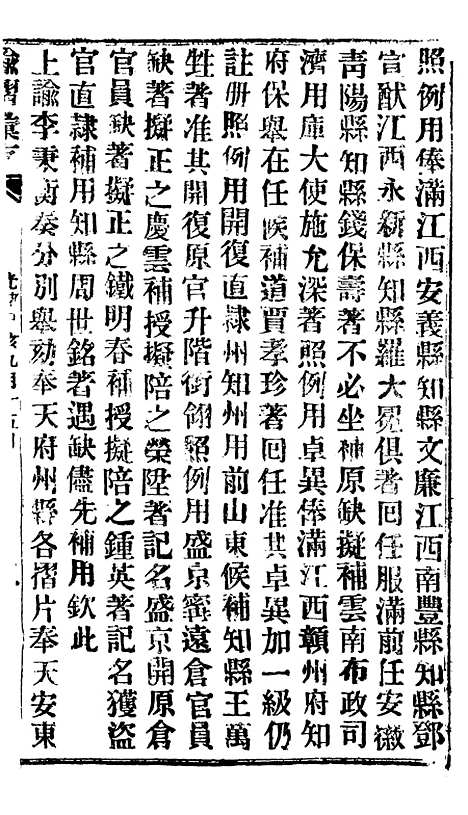 照例用俸滿江西安義縣知縣文廉江西南豐縣知縣鄧
宣猷江西永新縣知縣羅大冕俱著回任服滿前任安徽
青陽縣知縣錢保壽著不必坐補原缺擬補雲南布政司
濟用庫大使施允深著照例用卓異俸滿江西贛州府知
府保舉在任候補道賈孝珍著回任准其卓異加一級仍
註册照例用開復直隸州知州用前山東候補知縣王萬
甡著准其開復原官升階銜翎照例用盛京寧遠倉官員
缺著擬正之慶雲補授擬陪之榮陞著記名盛京開原倉
官員缺著擬正之鐵明春補授擬陪之鍾英著記名獲盜
官直隸補用知縣周世銘著遇缺儘先補用欽此
上諭李秉衡奏分別舉劾奉天府州縣各摺片奉天安東
諭摺彙存
九月十五日